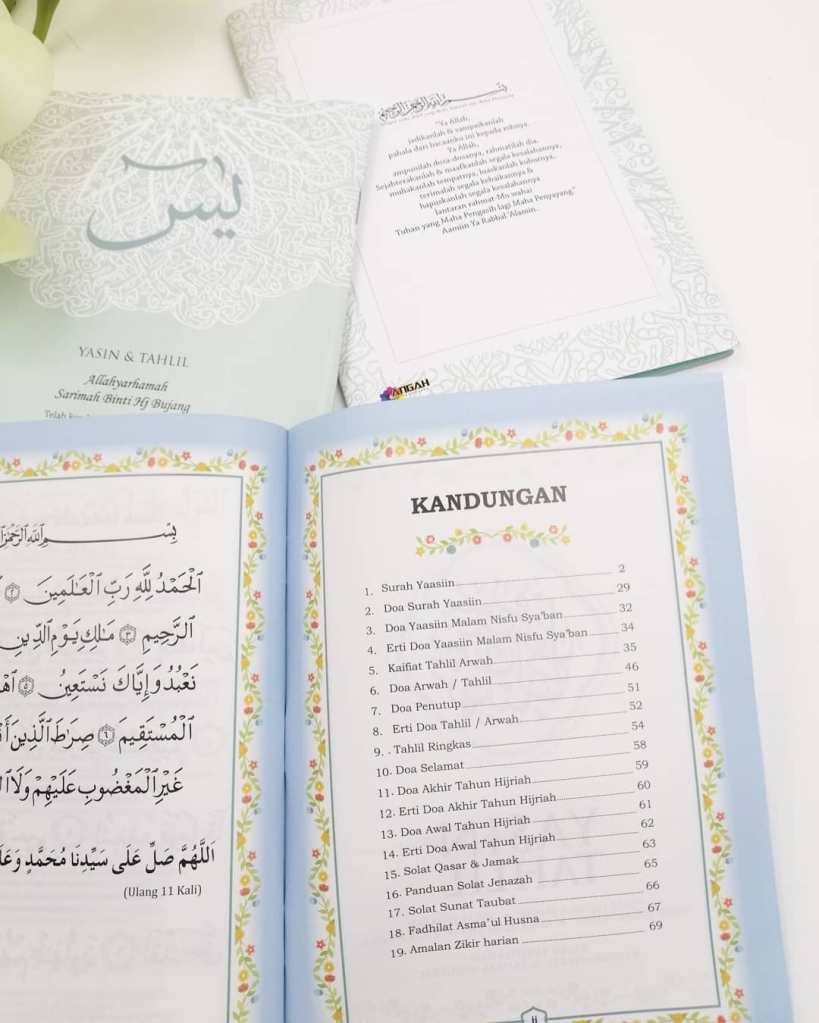 يس
YASIN & TAHLIL
Allahyarhamah
Sarimah Binti Hj Bujang
"Ya Allah,
jadikanlah & sampaikanlah
pahala dari bacaanku ini kepada rohnya.
Ya Allah,
ampunilah dosa-dosanya, rahmatilah dia.
Sejahterakanlah & maafkanlah segala kesalahannya,
muliakanlah tempatnya, luaskanlah kuburnya,
terimalah segala kebaikannya &
hapuskanlah segala kesalahannya
lantaran rahmat-Mu wahai
Tuhan yang Maha Pengasih lagi Maha Penyayang."
Aamiin Ya Rabbal 'Alamin..
ANGAH
بِسْمِ ٱللَّهِ ٱلرَّحْمَٰنِ
ٱلْحَمْدُ لِلَّهِ رَبِّ ٱلْعَٰلَمِينَ ٢
ٱلرَّحِيمِ ٣ مَٰلِكِ يَوْمِ ٱلدِّينِ
نَعْبُدُ وَإِيَّاكَ نَسْتَعِينُ ٥
ٱلْمُسْتَقِيمَ ٦ صِرَٰطَ ٱلَّذِينَ
غَيْرِ ٱلْمَغْضُوبِ عَلَيْهِمْ وَلَا
اَللَّهُمَّ صَلِّ عَلَى سَيِّدِنَا مُحَمَّدٍ
(Ulang 11 Kali)
KANDUNGAN
1. Surah Yaasiin 2
2. Doa Surah Yaasiin 29
3. Doa Yaasiin Malam Nisfu Sya'ban 32
4. Erti Doa Yaasiin Malam Nisfu Sya'ban 34
5. Kaifiat Tahlil Arwah 35
6. Doa Arwah / Tahlil 46
7. Doa Penutup 51
8. Erti Doa Tahlil / Arwah 52
9. . Tahlil Ringkas 54
10. Doa Selamat 58
11. Doa Akhir Tahun Hijriah 59
12. Erti Doa Akhir Tahun Hijriah 60
13. Doa Awal Tahun Hijriah 61
14. Erti Doa Awal Tahun Hijriah 62
15. Solat Qasar & Jamak 63
16. Panduan Solat Jenazah 65
17. Solat Sunat Taubat 66
18. Fadhilat Asma'ul Husna 67
19. Amalan Zikir harian 69
ii